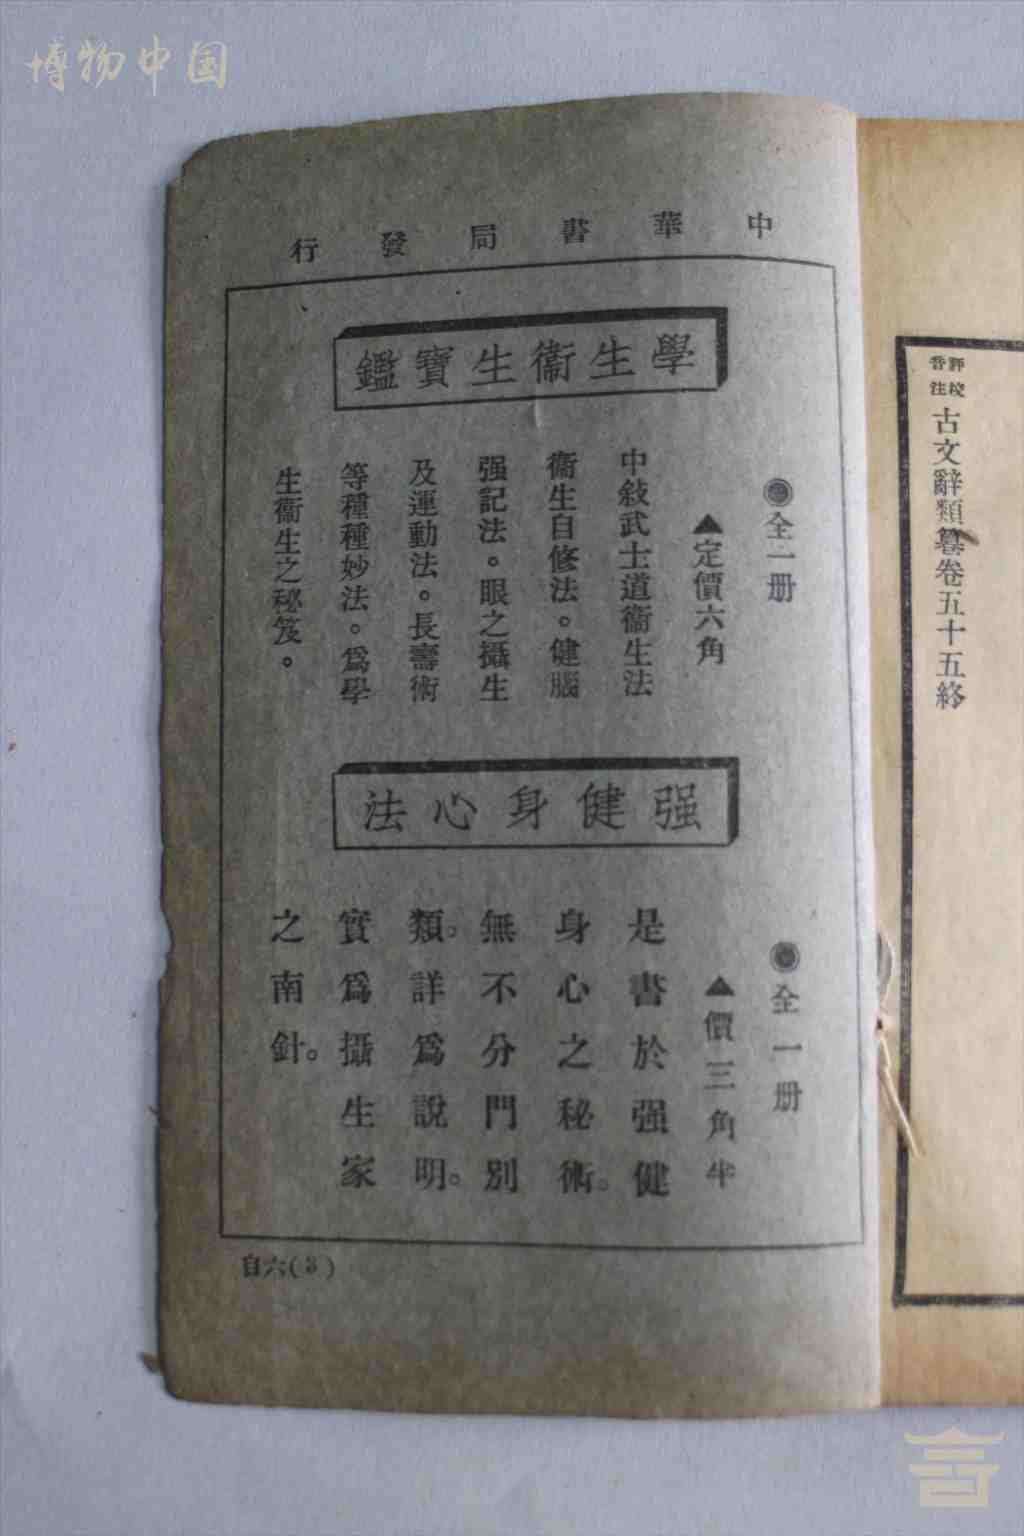 博物中国
中華書局發行
學生衞生寶鑑
◉全一册
▲定價六角
中敍武士道衞生法
衞生自修法。健腦
强記法。眼之攝生
及運動法。長壽術
等種種妙法。爲學
生衞生之秘笈。
强健身心法
◉全一册
▲價三角半
是書於强健
身心之秘術。
無不分門別
類。詳爲說明。
實爲攝生家
之南針。
自六(3)
評校
音注
古文辭類纂卷五十五終